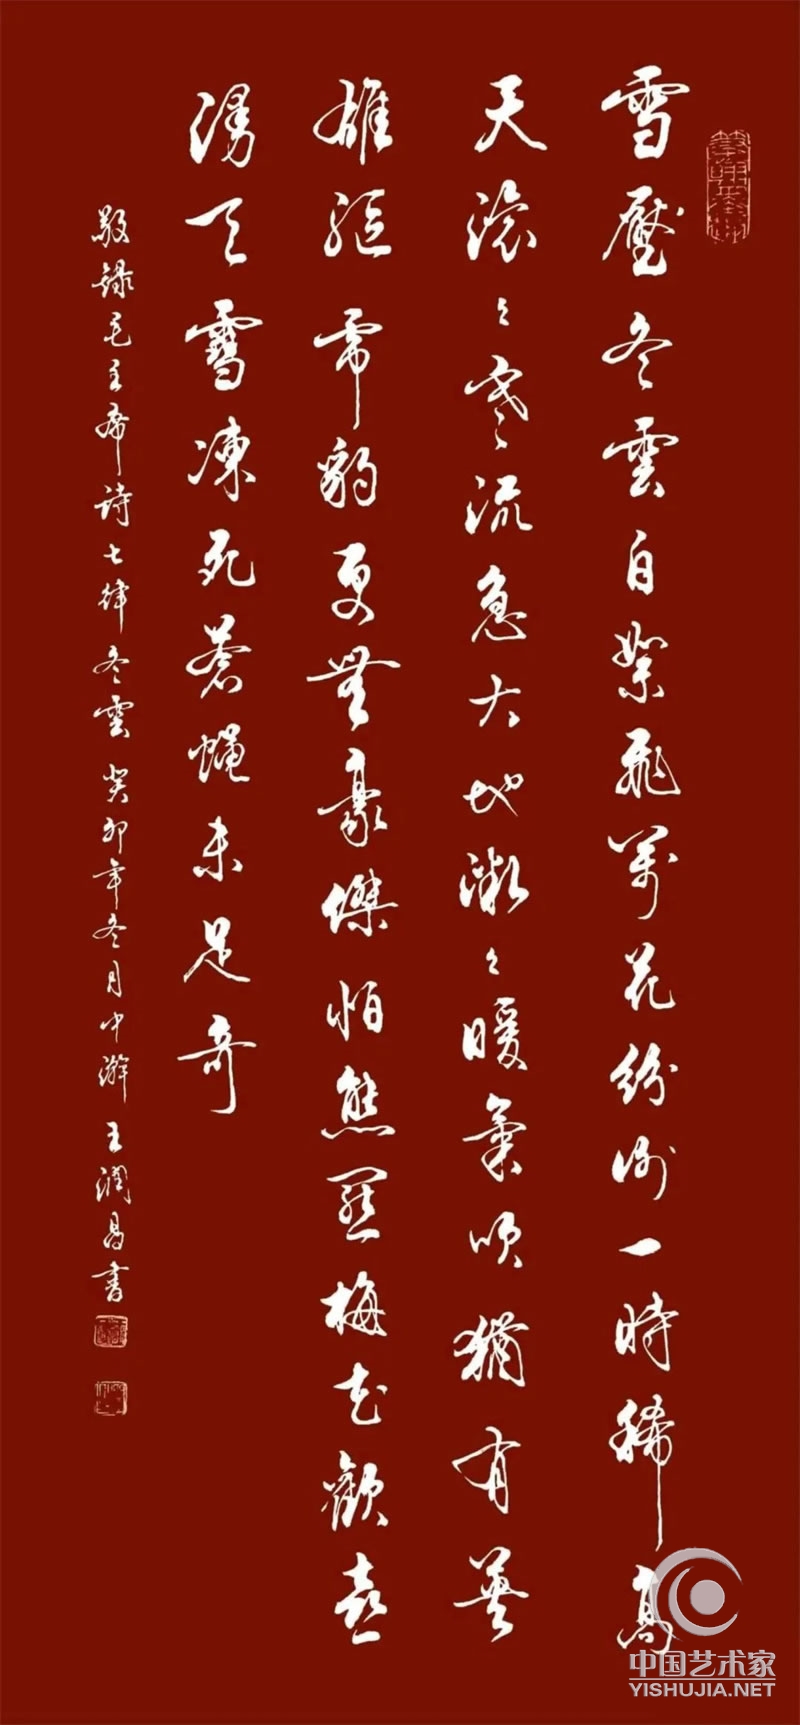 雪壓冬雲白絮飛萬花紛謝一時稀高
天滾々寒流急大地微々暖氣吹獨有英
雄驅虎豹更無豪傑怕熊羆梅花歡喜
漫天雪凍死蒼蠅未足奇
敬錄毛主席詩七律冬雲癸卯年冬月中澣王潤昌書
中国艺术家
YISHUJIA.NET